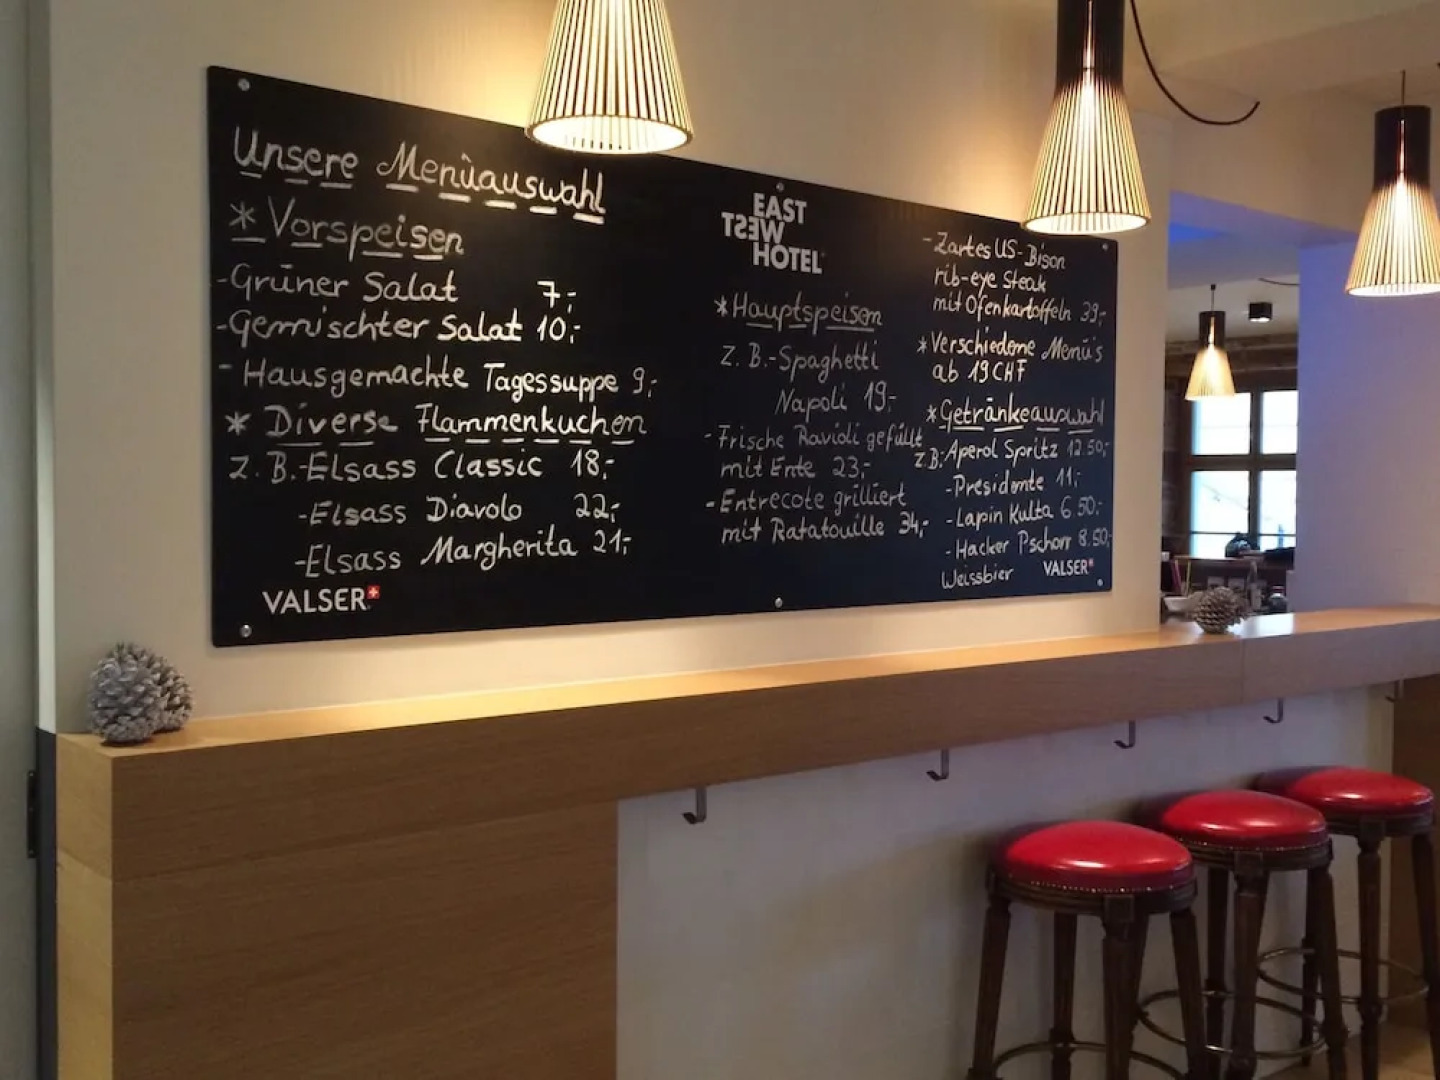 Unsere Menüauswahl
* Vorspeisen
-Grüner Salat 7,-
-Gemischter Salat 10,-
- Hausgemachte Tagessuppe 9,-
* Diverse Flammenkuchen
z.B.-Elsass Classic 18,-
-Elsass Diavolo 22,-
-Elsass Margherita 21,-
VALSER
EAST
WEST
HOTEL
*Hauptspeisen
z.B.-Spaghetti
Napoli 19,-
-Frische Ravioli gefüllt
mit Ente 23,-
-Entrecote grilliert
mit Ratatouille 34,-
-Zartes US-Bison
rib-eye Steak
mit Ofenkartoffeln 39,-
*Verschiedene Menü's
ab 19 CHF
*Getränkeauswahl
z.B.-Aperol Spritz 12.50,-
-Presidente 11,-
-Lapin Kulta 6.50,-
-Hacker Pschorr 8.50,-
Weissbier
VALSER